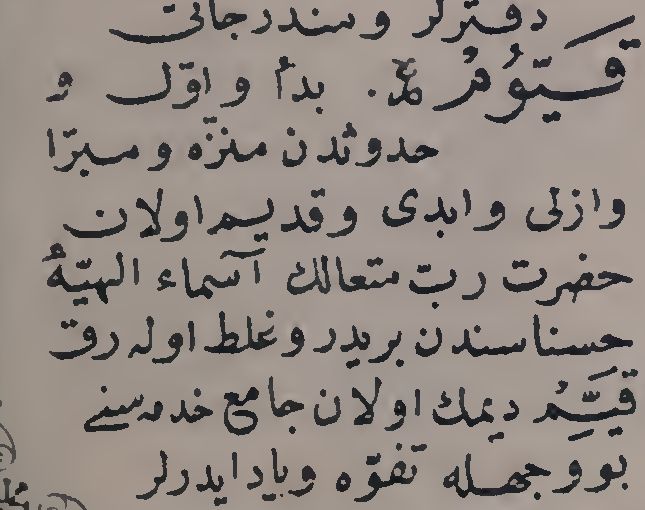 دفترلر و مندرجاتی
قَیّوُمُ ع. بدأ و اوّل و
حدوثدن منزّه و مبرّا
و ازلی و ابدی و قدیم اولان
حضرت ربّ متعالك آسماء الهیّهٔ
حسناسندن بریدر و غلط اوله رق
قَیّمُ دیمك اولان جامع خدمه سنی
بو وجهله تفوّه و یاد ایدرلر